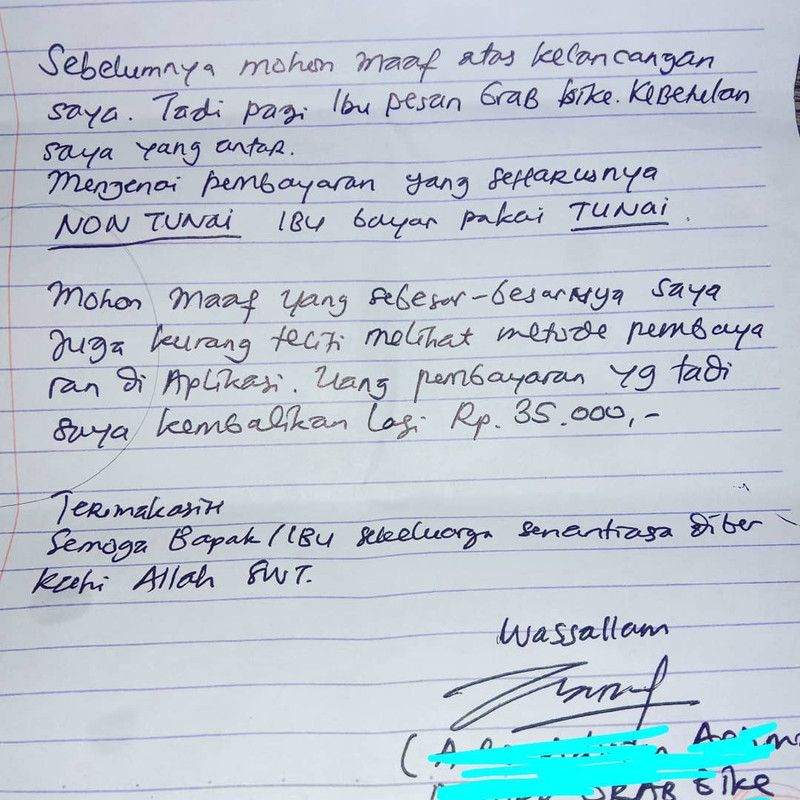 Sebelumnya mohon maaf atas kelancangan
saya. Tadi pagi Ibu pesan Grab Bike. Kebetulan
saya yang antar.
Mengenai pembayaran yang seharusnya
NON TUNAI IBU bayar pakai TUNAI.
Mohon maaf yang sebesar-besarnya saya
juga kurang teliti melihat metode pembaya
ran di Aplikasi. Uang pembayaran yg tadi
saya kembalikan lagi Rp. 35.000,-
Terimakasih
Semoga Bapak/IBU sekeluarga senantiasa diber
kahi Allah SWT.
Wassallam
(
GRAB Bike